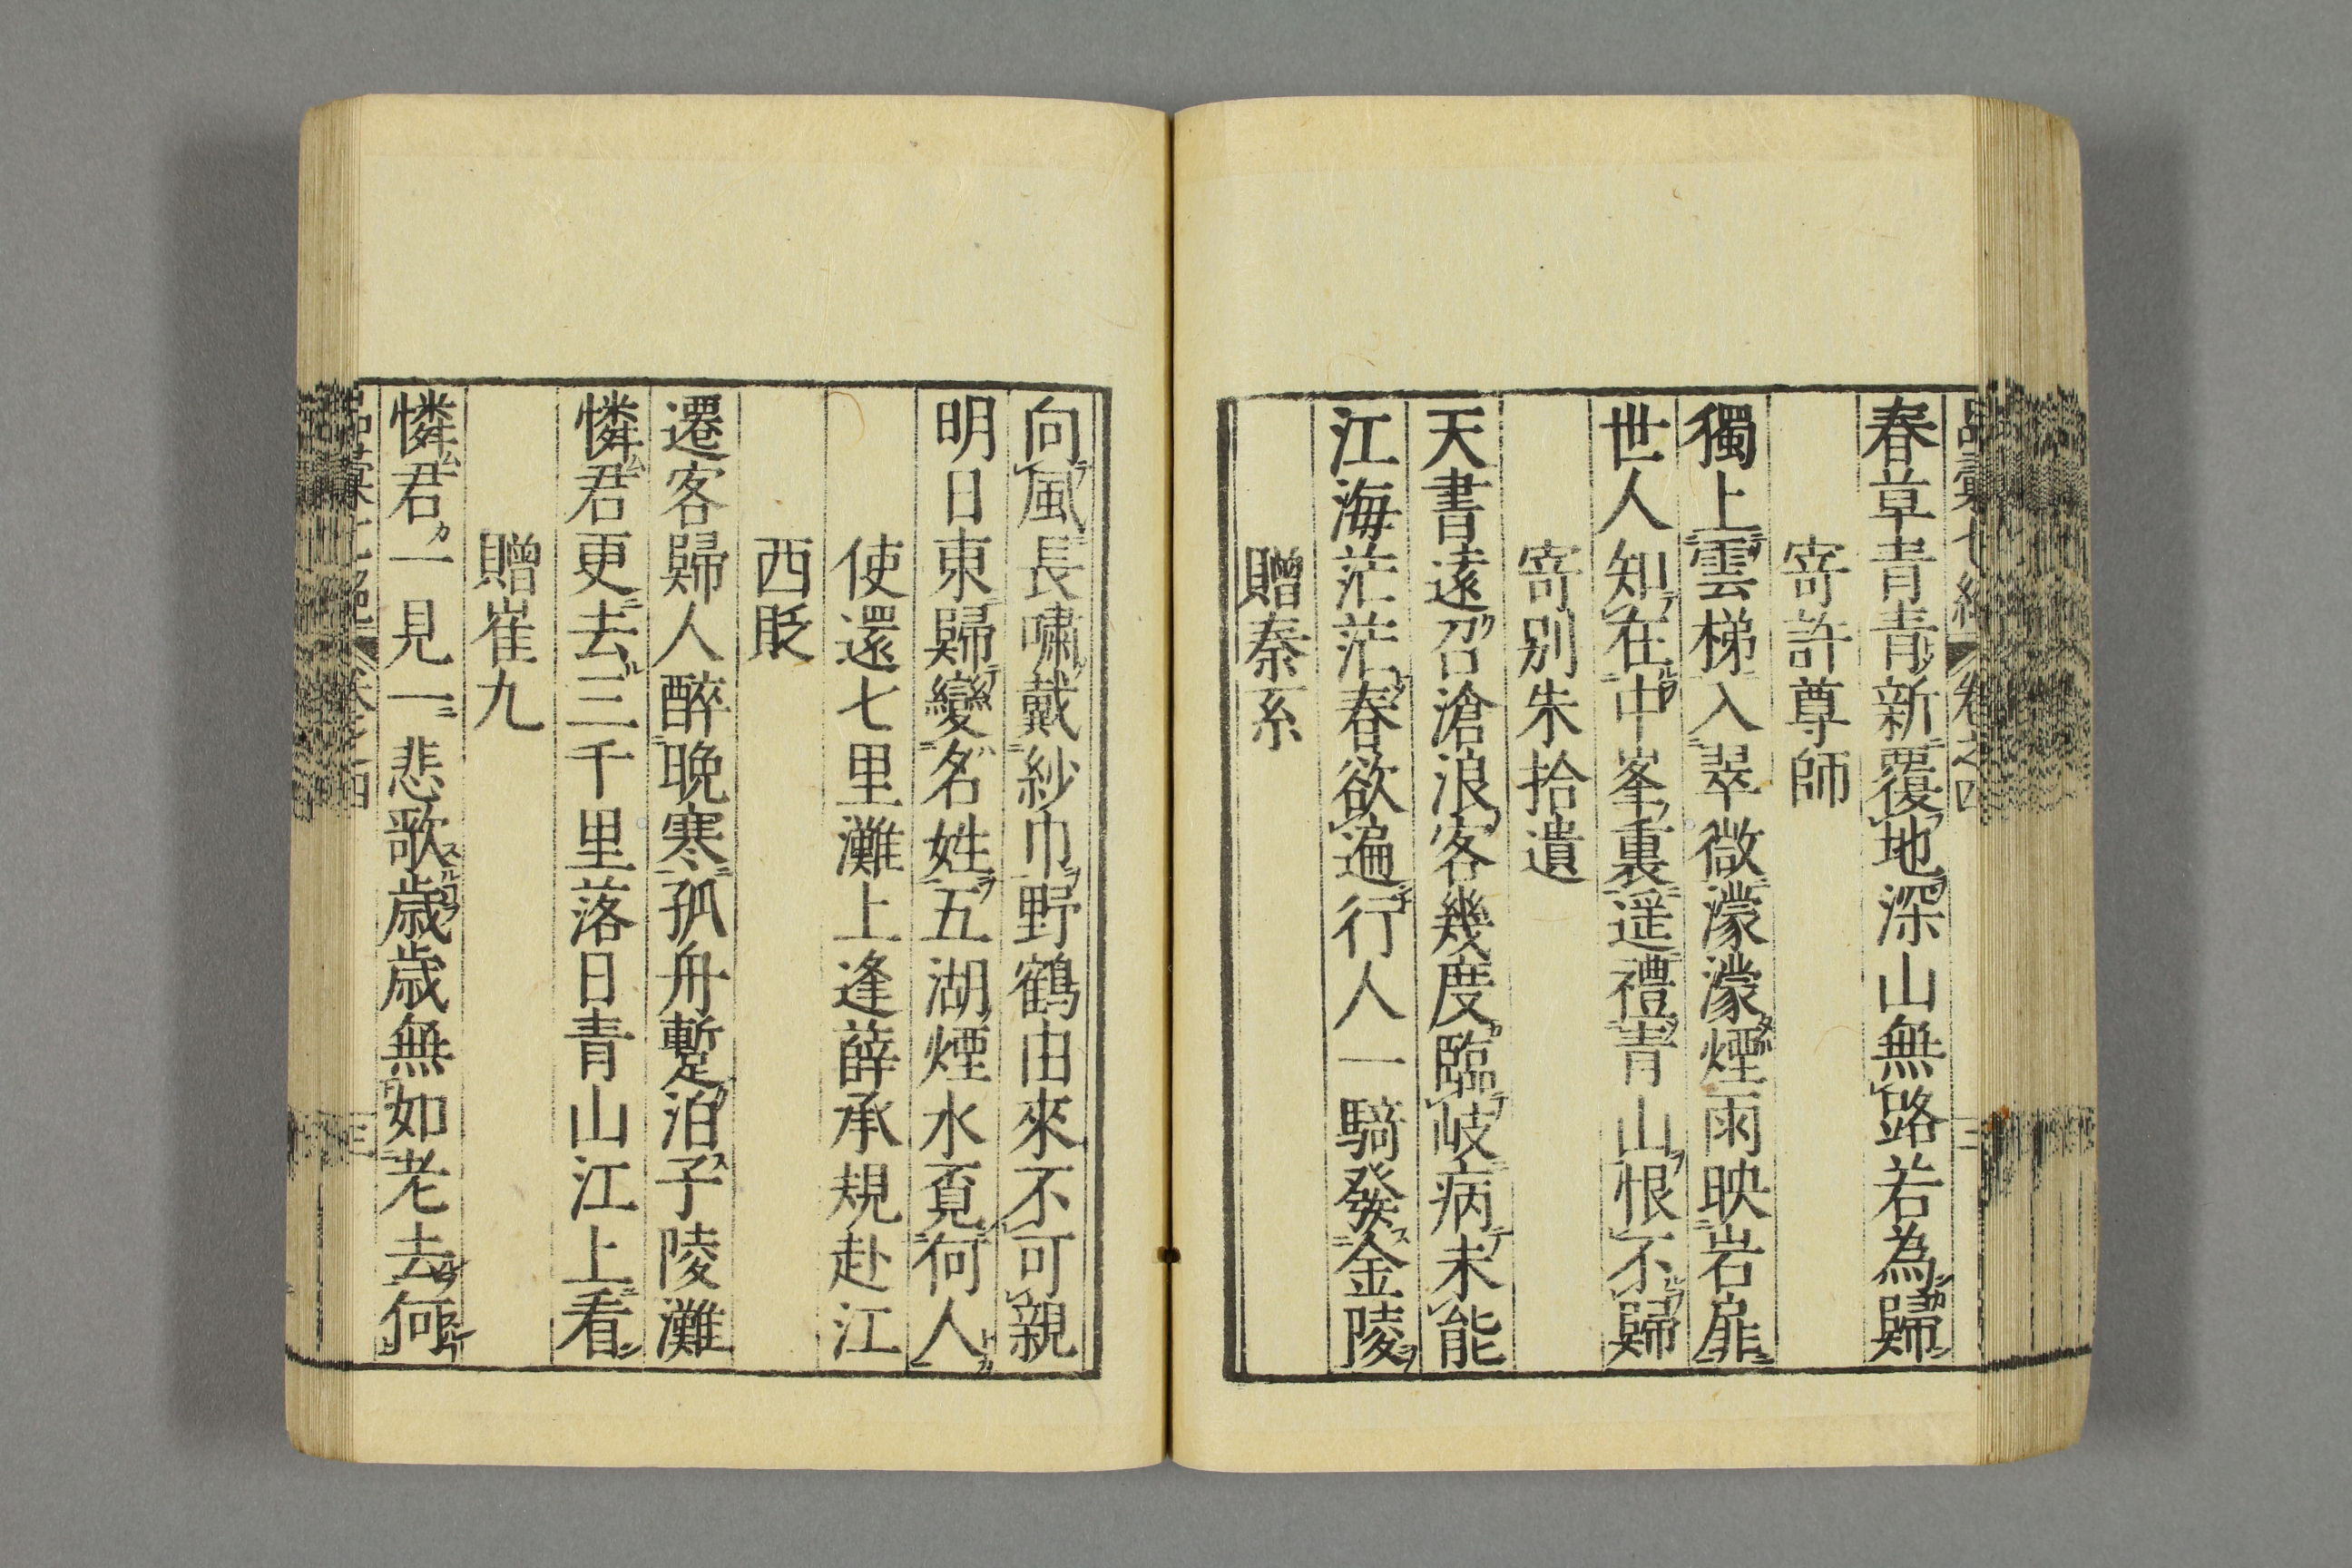 春草青青新覆地深山無路若為歸
寄許尊師
獨上雲梯入翠微濛濛煙雨映岩扉
世人知在中峯裏遥禮青山恨不歸
寄別朱拾遺
天書遠召滄浪客幾度臨岐病未能
江海茫茫春欲遍行人一騎發金陵
贈秦系
向風長嘯戴紗巾野鶴由來不可親
明日東歸變名姓五湖煙水覓何人
使還七里灘上逢薛承規赴江
西貶
遷客歸人醉晚寒孤舟暫泊子陵灘
憐君更去三千里落日青山江上看
贈崔九
憐君一見一悲歌歳歳無如老去何